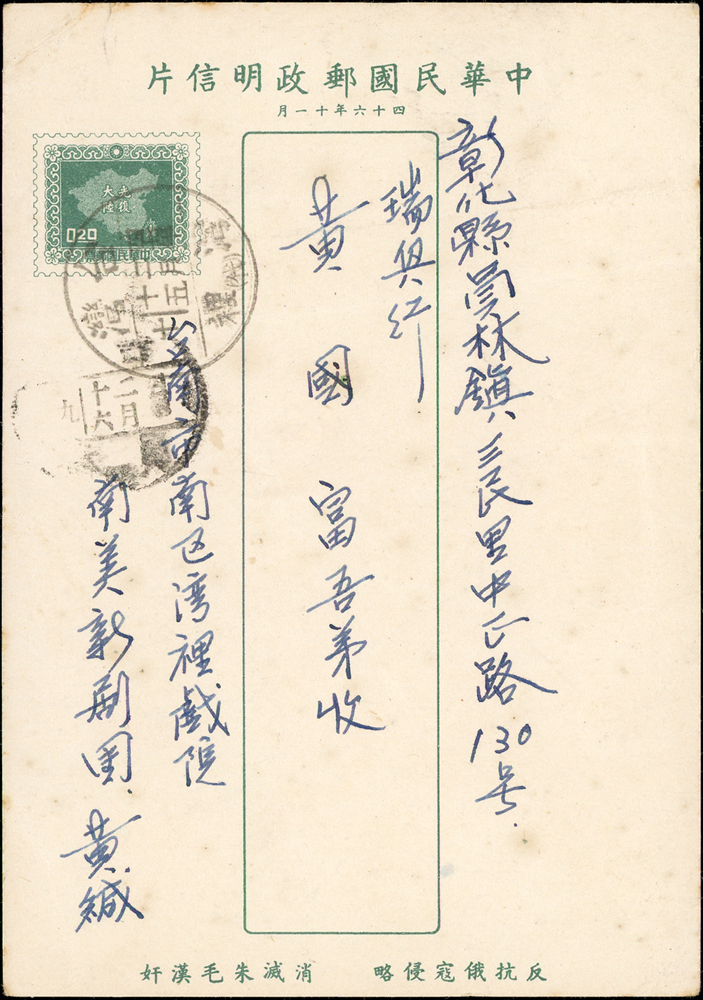 中華民國郵政明信片
四十六年十一月
光復大陸
0.20
中華民國郵票
彰化縣員林鎮三民里中正路130号
瑞興行
黄國富吾弟收
台南市南区湾裡戲院
南美新剧団、黄緘
台灣
灣裡
二月
十六
九
反抗俄寇侵略
消滅朱毛漢奸